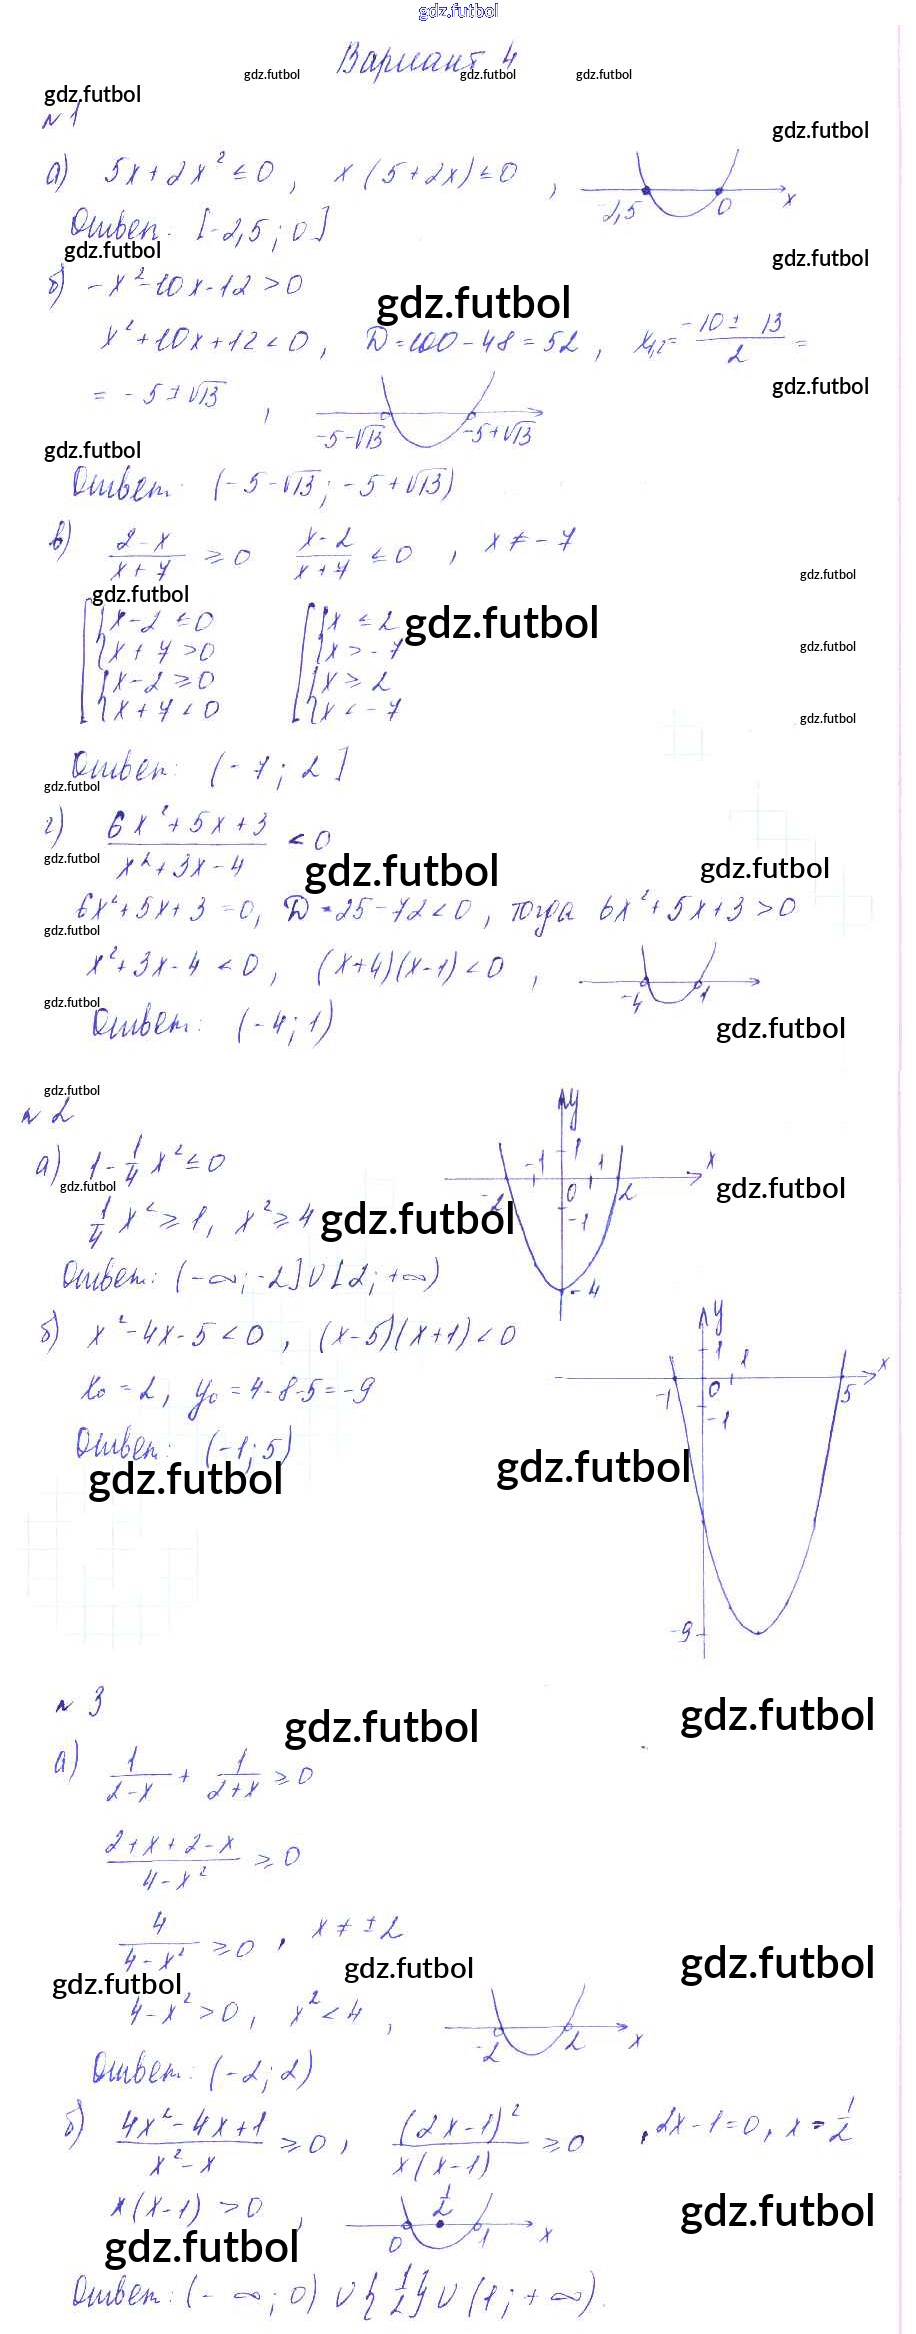 gdz.futbol
Вариант 4
gdz.futbol gdz.futbol gdz.futbol
gdz.futbol
№1
gdz.futbol
а) 5x+2x²≤0, x(5+2x)≤0,
-2,5 0 x
Ответ: [-2,5; 0]
gdz.futbol gdz.futbol
б) -x²-10x-12>0
gdz.futbol
x²+10x+12<0, D=100-48=52, x₁,₂= (-10± 13)/2 =
gdz.futbol
= -5±√13,
-5-√13 -5+√13
gdz.futbol
Ответ: (-5-√13; -5+√13)
в) (2-x)/(x+7) ≥0 (x-2)/(x+7) ≤0, x≠-7
gdz.futbol
gdz.futbol
[{x-2≤0 [{x≤2
gdz.futbol
{x+7>0 {x>-7
gdz.futbol
{x-2≥0 {x≥2
{x+7<0 {x<-7
gdz.futbol
Ответ: (-7; 2]
gdz.futbol
г) (6x²+5x+3)/(x²+3x-4) <0
gdz.futbol gdz.futbol gdz.futbol
6x²+5x+3=0, D=25-72<0, тогда 6x²+5x+3>0
gdz.futbol
x²+3x-4<0, (x+4)(x-1)<0,
-4 1
gdz.futbol
Ответ: (-4; 1)
gdz.futbol
gdz.futbol
№2
y
а) 1-1/4 x²≤0
-1 1 1 x
gdz.futbol gdz.futbol
-2 0 2
1/4 x²≥1, x²≥4
gdz.futbol
-1
Ответ: (-∞; -2]∪[2; +∞)
-4
б) x²-4x-5<0, (x-5)(x+1)<0
y
1 1 x
x₀=2, y₀=4-8-5=-9
-1 0 5
-1
Ответ: (-1; 5)
gdz.futbol gdz.futbol
-9
№3
gdz.futbol gdz.futbol
а) 1/(2-x) + 1/(2+x) ≥0
(2+x+2-x)/(4-x²) ≥0
4/(4-x²) ≥0, x≠±2
gdz.futbol gdz.futbol gdz.futbol
4-x²>0, x²<4,
-2 2 x
Ответ: (-2; 2)
б) (4x²-4x+1)/(x²-x) ≥0, (2x-1)²/(x(x-1)) ≥0, 2x-1=0, x=1/2
x(x-1)>0,
0 1/2 1 x
gdz.futbol
gdz.futbol
Ответ: (-∞; 0)∪{1/2}∪(1; +∞).